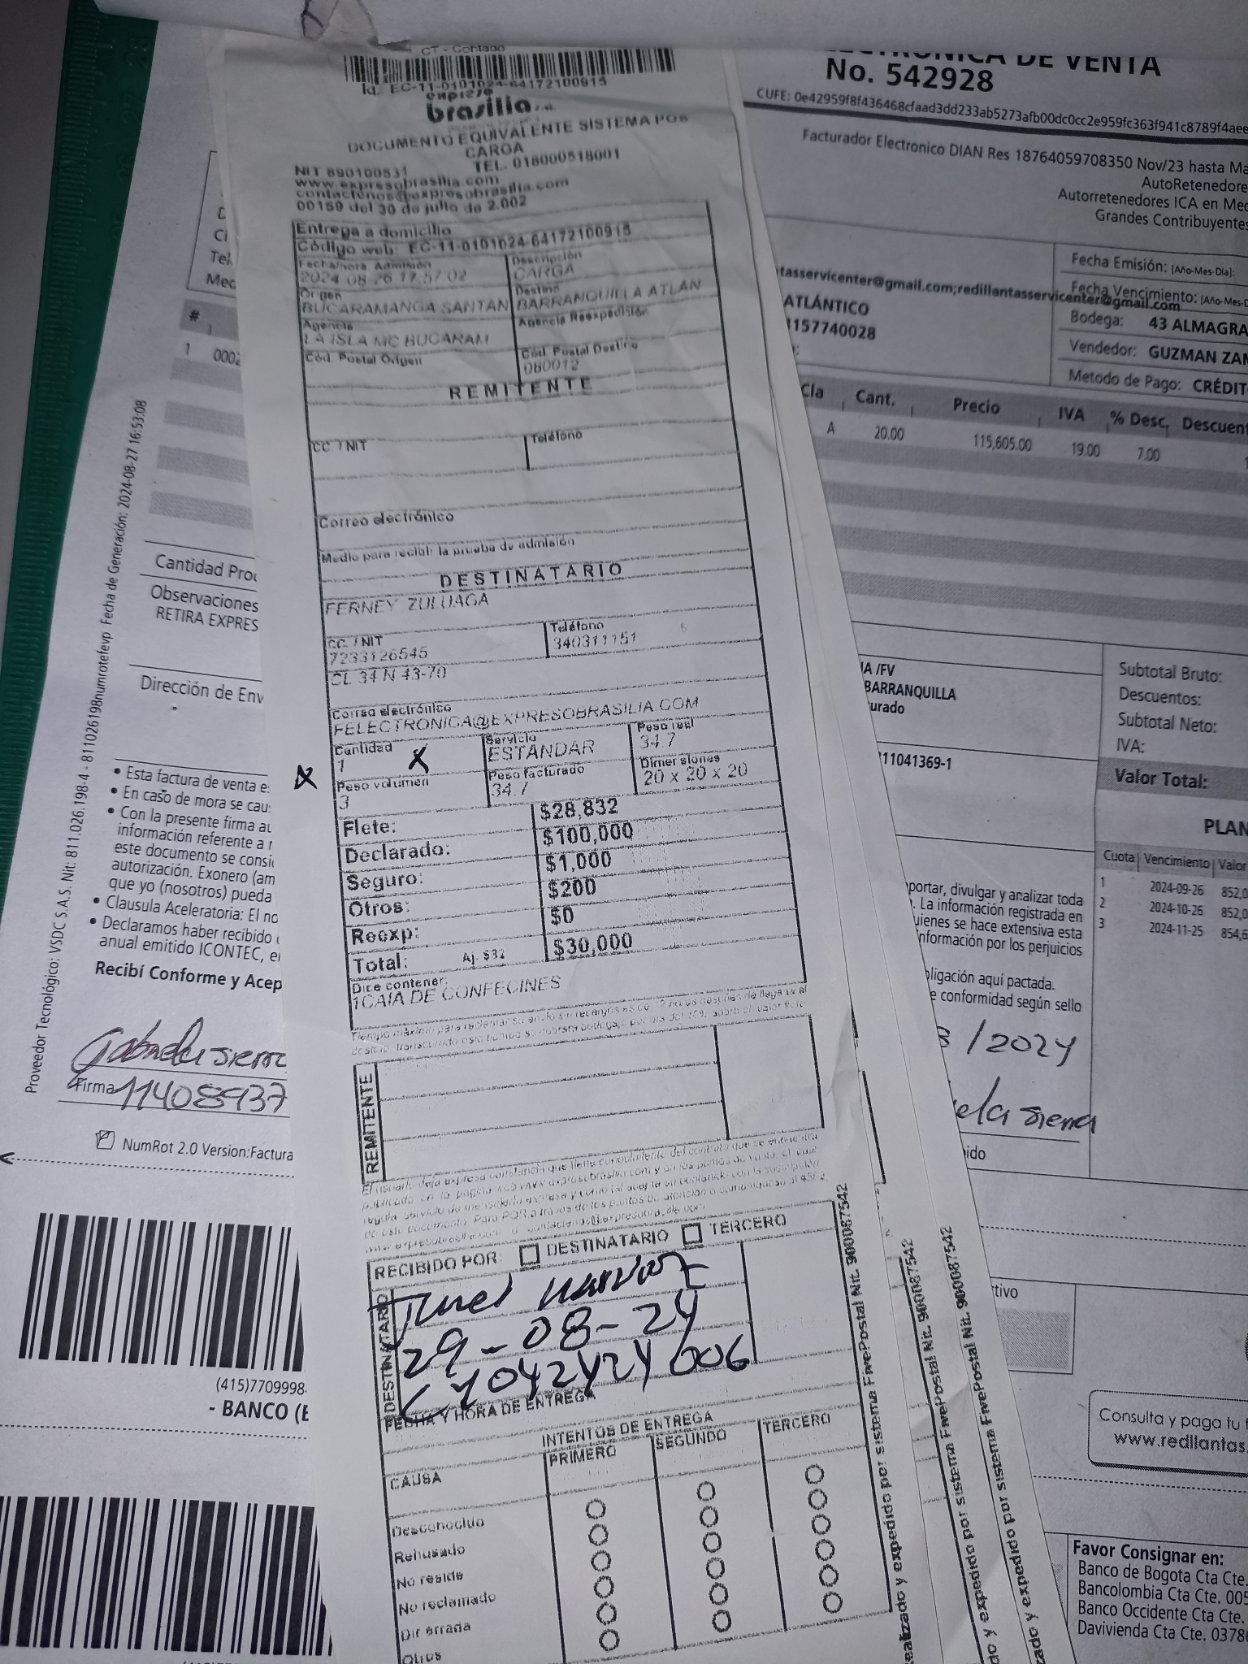 CT - Contado
Id. EC-11-0101024-64172100915
expreso
brasilia s.a.
DOCUMENTO EQUIVALENTE SISTEMA POS
CARGA
NIT 890100531 TEL. 018000518001
www.expresobrasilia.com
contactenos@expresobrasilia.com
00159 del 30 de julio de 2.002
Entrega a domicilio
Código web: EC-11-0101024-64172100915
Fecha/hora Admisión
2024-08-26 17:57:02
Descripción
CARGA
Origen
BUCARAMANGA SANTAN
Destino
BARRANQUILLA ATLAN
Agencia
LA ISLA MC BUCARAM
Agencia Reexpedisión
Cód. Postal Origen
Cód. Postal Destino
080012
REMITENTE
CC. / NIT
Teléfono
Correo electrónico
Medio para recibir la prueba de admisión
DESTINATARIO
FERNEY ZULUAGA
CC. / NIT
7233126545
Teléfono
340311151
CL 34 N 43-70
Correo electrónico
FELECTRONICA@EXPRESOBRASILIA.COM
Cantidad
1
Servicio
ESTANDAR
Peso real
34.7
Peso volumen
3
Peso facturado
34.7
Dimensiones
20 x 20 x 20
Flete: $28,832
Declarado: $100,000
Seguro: $1,000
Otros: $200
Reexp: $0
Total: Aj. $32 $30,000
Dice contener:
1CAJA DE CONFECINES
REMITENTE
RECIBIDO POR: DESTINATARIO TERCERO
DESTINATARIO
29-08-24
1042424006
FECHA Y HORA DE ENTREGA
INTENTOS DE ENTREGA
CAUSA PRIMERO SEGUNDO TERCERO
Desconocido
Rehusado
No reside
No reclamado
Dir errada
Otros
ealizado y expedido por sistema FivePostal Nit. 900087542
do y expedido por sistema FivePostal Nit. 900087542
zado y expedido por sistema FivePostal Nit. 900087542
DE VENTA
No. 542928
CUFE: 0e42959f8f436468cfaad3dd233ab5273afb00dc0cc2e959fc363f941c8789f4aee
Facturador Electronico DIAN Res 18764059708350 Nov/23 hasta Ma
AutoRetenedore
Autorretenedores ICA en Med
Grandes Contribuyente
Fecha Emisión: [Año-Mes-Día]:
Fecha Vencimiento: [Año-Mes-D
tasservicenter@gmail.com;redillantasservicenter@gmail.com
ATLÁNTICO
157740028
Bodega: 43 ALMAGRA
Vendedor: GUZMAN ZAN
Metodo de Pago: CRÉDIT
Cla Cant. Precio IVA % Desc. Descuen
A 20.00 115,605.00 19.00 7.00
Ci
Tel
Med
#
1 0002
Cantidad Pro
Observaciones
RETIRA EXPRES
Dirección de Env
IA /FV
BARRANQUILLA
urado
11041369-1
Subtotal Bruto:
Descuentos:
Subtotal Neto:
IVA:
Valor Total:
PLAN
Cuota Vencimiento Valor
1 2024-09-26 852,0
2 2024-10-26 852,0
3 2024-11-25 854,6
• Esta factura de venta e
• En caso de mora se cau
• Con la presente firma au
información referente a
este documento se consi
autorización. Exonero (am
que yo (nosotros) pueda
• Clausula Aceleratoria: El no
• Declaramos haber recibido
anual emitido ICONTEC, e
Recibí Conforme y Acep
portar, divulgar y analizar toda
. La información registrada en
uienes se hace extensiva esta
nformación por los perjuicios
bligación aquí pactada.
e conformidad según sello
/2024
Gabriela Sierra
Firma 11408937
ela Sierra
ido
NumRot 2.0 Version:Factura
Proveedor Tecnológico: VSDC S.A.S. Nit: 811.026.198-4 - 811026198numrotefevp Fecha de Generación: 2024-08-27 16:53:08
(415)7709998
- BANCO (E
tivo
Consulta y paga tu
www.redllantas.
Favor Consignar en:
Banco de Bogota Cta Cte.
Bancolombia Cta Cte. 005
Banco Occidente Cta Cte.
Davivienda Cta Cte. 0378